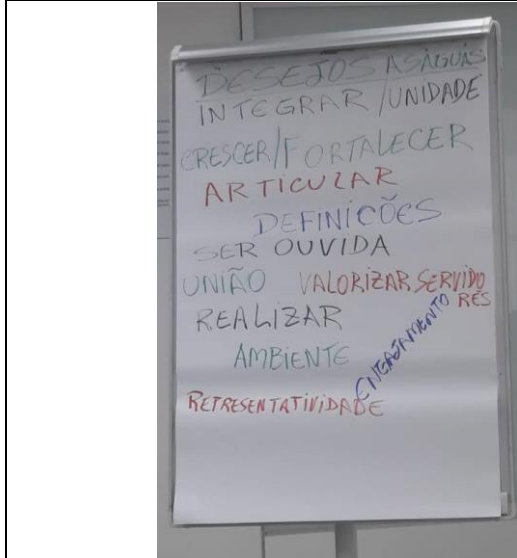 DESEJOS ASÁGUAS
INTEGRAR / UNIDADE
CRESCER/FORTALECER
ARTICULAR
DEFINIÇÕES
SER OUVIDA
UNIÃO VALORIZAR SERVIDO
RES
REALIZAR
ENGAJAMENTO
AMBIENTE
REPRESENTATIVIDADE